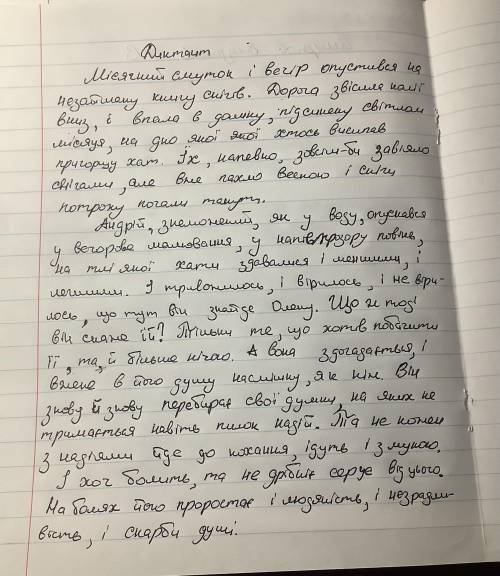 Диктант
Місячний смуток і вечір опустився на
незайману книгу снігів. Дорога звісила полі
вниз, і впала в долину, підсинену світлом
місяця, на дно якої якої хтось висипав
пригорщу хат. Їх, напевно, зовсім-би завіяло
снігами, але вже пахло весною і сніги
потроху почали танути.
Андрій, знеможений, як у воду, опускався
у вечорове малювання, у напівпрозору повінь,
на тлі якої хати здавалися і меншими, і
легшими. І тривожилось, і вірилось, і не віри-
лось, що тут він знайде Олену. Що ж тоді
він скаже їй? Тільки те, що хотів побачити
її, та, й більше нічого. А вона здогадається, і
вжене в його душу насмішку, як ніж. Він
знову й знову перебирає свої думки, на яких не
тримається навіть пилок надій. Та не кожен
з надіями йде до кохання, ідуть і з мукою.
І хоч болить, та не дрібніє серце від цього.
На болях його проростає і людяність, і незрадли-
вість, і скарби душі.